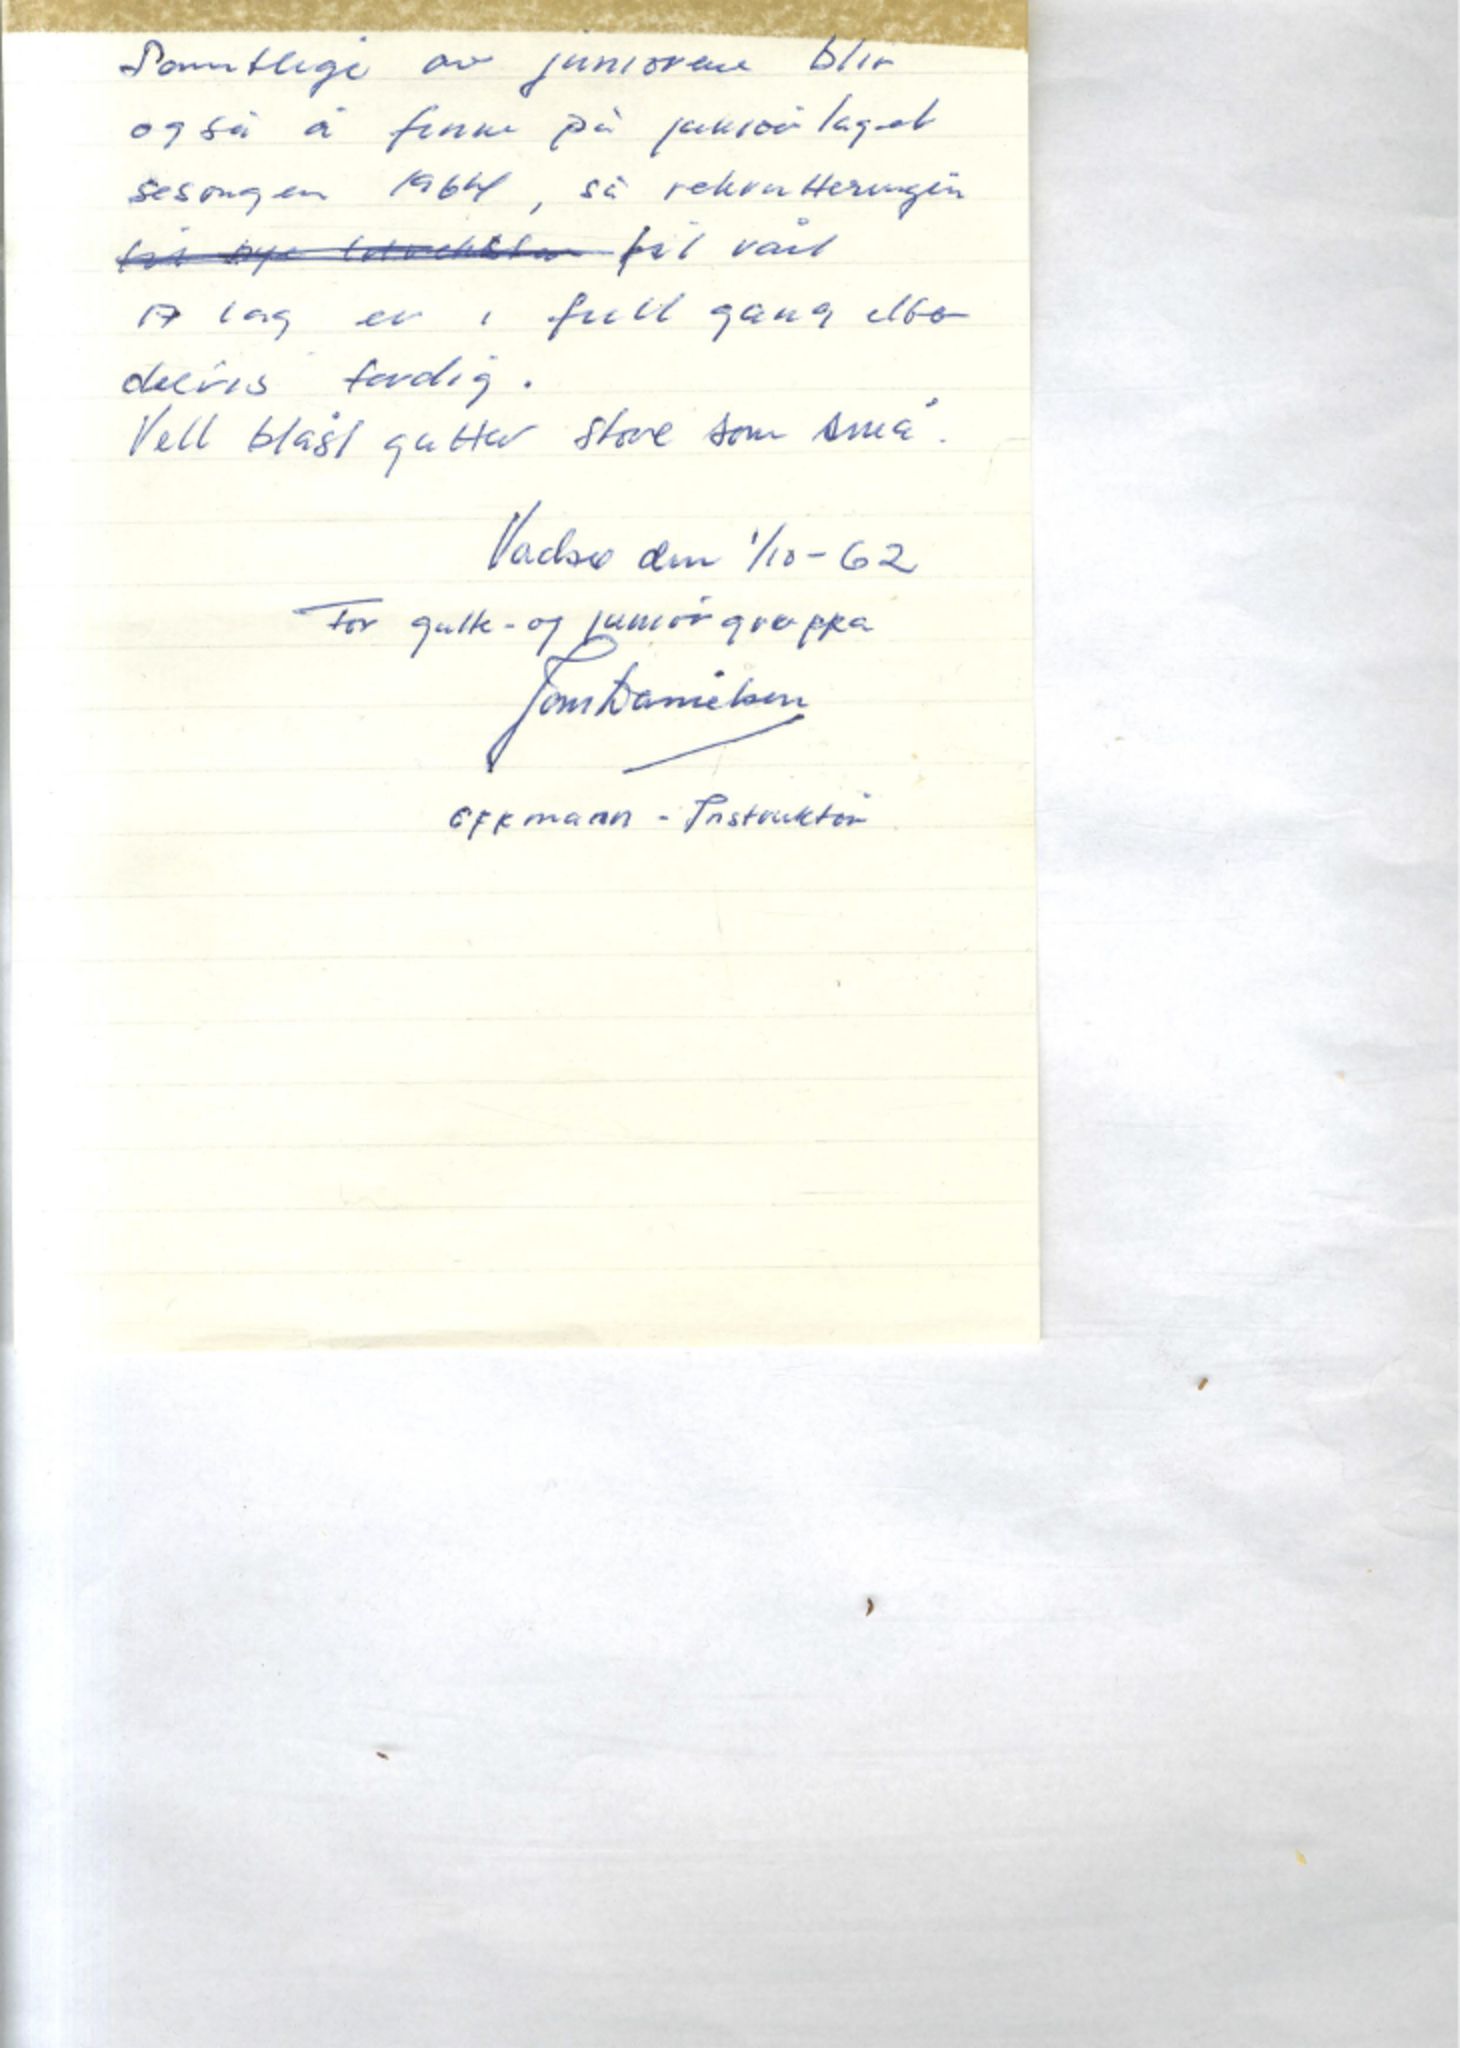 Samtlige av juniorene blir
også å finne på juniorlaget
sesongen 1964, så rekrutteringen
til vårt
A lag er i full gang eller
delvis ferdig.
Vell blåst gutter store som små.
Vadsø den 1/10-62
For gutte- og juniorgruppa
Tom Danielsen
Oppmann - Instruktør